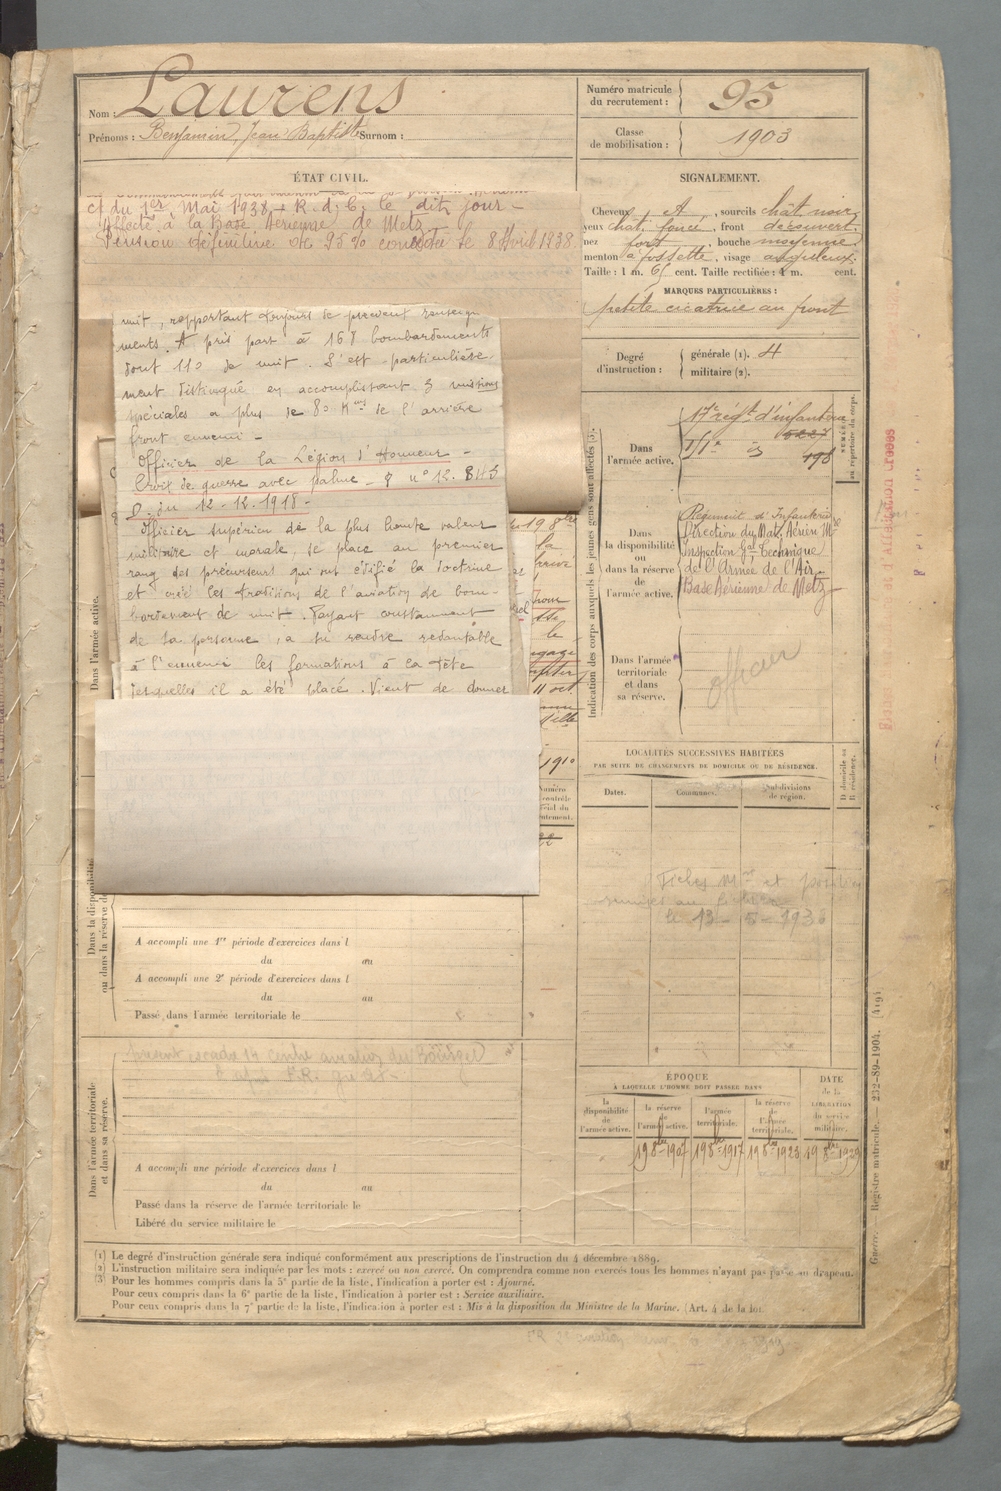 Nom : Laurens
Prénoms : Benjamin, Jean Baptiste Surnom :
Numéro matricule
du recrutement : 95
Classe
de mobilisation : 1903
ÉTAT CIVIL.
et du 1er Mai 1938 + R. d. C. le dit jour -
Affecté à la Base Aérienne de Metz
Pension définitive de 95% concédée le 8 Avril 1938.
nuit, rapportant toujours de précieux renseigne
ments. A pris part à 168 bombardements
dont 110 de nuit. S'est particulière-
ment distingué en accomplissant 5 missions
spéciales a plus de 80 Kms de l'arrière
front ennemi -
Officier de la Légion d'Honneur -
Croix de guerre avec palme - n° 12.843
D. du 12-12-1918 -
Officier supérieur de la plus haute valeur
militaire et morale, se place au premier
rang des précurseurs qui ont édifié la doctrine
et créé les traditions de l'aviation de bom-
bardement de nuit. Payant constamment
de la personne, a su rendre redoutable
à l'ennemi les formations à la tête
desquelles il a été placé. Vient de donner
11 oct
1910
Numéro
SIGNALEMENT.
Cheveux A, sourcils chât noir
yeux chat. foncé, front découvert.
nez fort, bouche moyenne
menton à fossette, visage anguleux.
Taille : 1 m. 65 cent. Taille rectifiée : 1 m. cent.
MARQUES PARTICULIÈRES :
petite cicatrice au front
Degré
d'instruction :
générale (1). 4
militaire (2).
Indication des corps auxquels les jeunes gens sont affectés (3).
NUMÉROS
au répertoire du corps.
Dans
l'armée active.
17e régt d'infanterie
Dans
la disponibilité
ou
dans la réserve
de
l'armée active.
Régiment d'Infanterie
Direction du Mat. Aérien Mre
Inspection Gal Technique
de l'Armée de l'Air
Base Aérienne de Metz
Dans l'armée
territoriale
et dans
sa réserve.
officier
LOCALITÉS SUCCESSIVES HABITÉES
PAR SUITE DE CHANGEMENTS DE DOMICILE OU DE RÉSIDENCE.
D domicile ou
R résidence.
Dates.
Communes.
Subdivisions
de région.
le 13-5-1936
Dans l'armée active.
Dans la disponibilité
ou dans la réserve de
A accompli une 1re période d'exercices dans l
du au
A accompli une 2e période d'exercices dans l
du au
Passé dans l'armée territoriale le
Dans l'armée territoriale
et dans sa réserve.
A accompli une période d'exercices dans l
du au
Passé dans la réserve de l'armée territoriale le
Libéré du service militaire le
ÉPOQUE
À LAQUELLE L'HOMME DOIT PASSER DANS
DATE
de la
LIBÉRATION
du service
militaire.
la
disponibilité
de
l'armée active.
la réserve
de
l'armée active.
l'armée
territoriale.
la réserve
de
l'armée
territoriale.
19 8bre 1907
19 8bre 1917
19 8bre 1923
19 8bre 1929
(1) Le degré d'instruction générale sera indiqué conformément aux prescriptions de l'instruction du 4 décembre 1889.
(2) L'instruction militaire sera indiquée par les mots : exercé ou non exercé. On comprendra comme non exercés tous les hommes n'ayant pas passé au drapeau.
(3) Pour les hommes compris dans la 5e partie de la liste, l'indication à porter est : Ajourné.
Pour ceux compris dans la 6e partie de la liste, l'indication à porter est : Service auxiliaire.
Pour ceux compris dans la 7e partie de la liste, l'indication à porter est : Mis à la disposition du Ministre de la Marine. (Art. 4 de la loi.
Guerre. — Registre matricule. — 232-89-1904. (419)